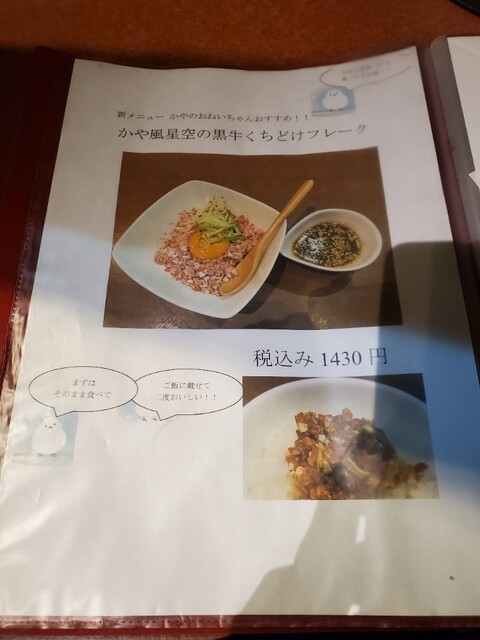 新メニュー かやのおねいちゃんおすすめ！！
かや風星空の黒牛くちどけフレーク
税込み 1430 円
まずは
そのまま食べて
ご飯に載せて
二度おいしい！！